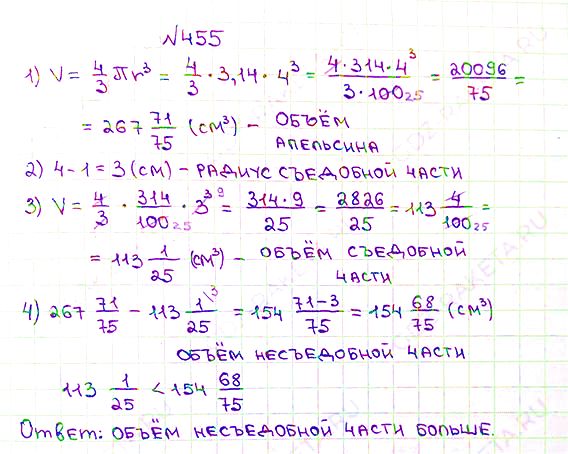 №455
1) V = 4/3 πr³ = 4/3 · 3,14 · 4³ = 4·314·4³/3·100 25 = 20096/75 =
= 267 71/75 (см³) – ОБЪЁМ
АПЕЛЬСИНА
2) 4-1 = 3 (см) – РАДИУС СЪЕДОБНОЙ ЧАСТИ
3) V = 4/3 · 314/100 25 · 3³ 9 = 314·9/25 = 2826/25 = 113 4/100 25 =
= 113 1/25 (см³) – ОБЪЁМ СЪЕДОБНОЙ
ЧАСТИ
4) 267 71/75 – 113 1\3/25 = 154 71-3/75 = 154 68/75 (см³)
ОБЪЁМ НЕСЪЕДОБНОЙ ЧАСТИ
113 1/25 < 154 68/75
Ответ: ОБЪЁМ НЕСЪЕДОБНОЙ ЧАСТИ БОЛЬШЕ.